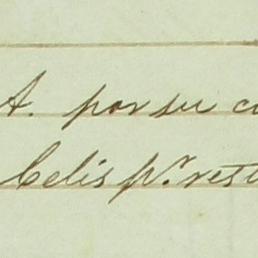 A. por su c
Celis p.r rest